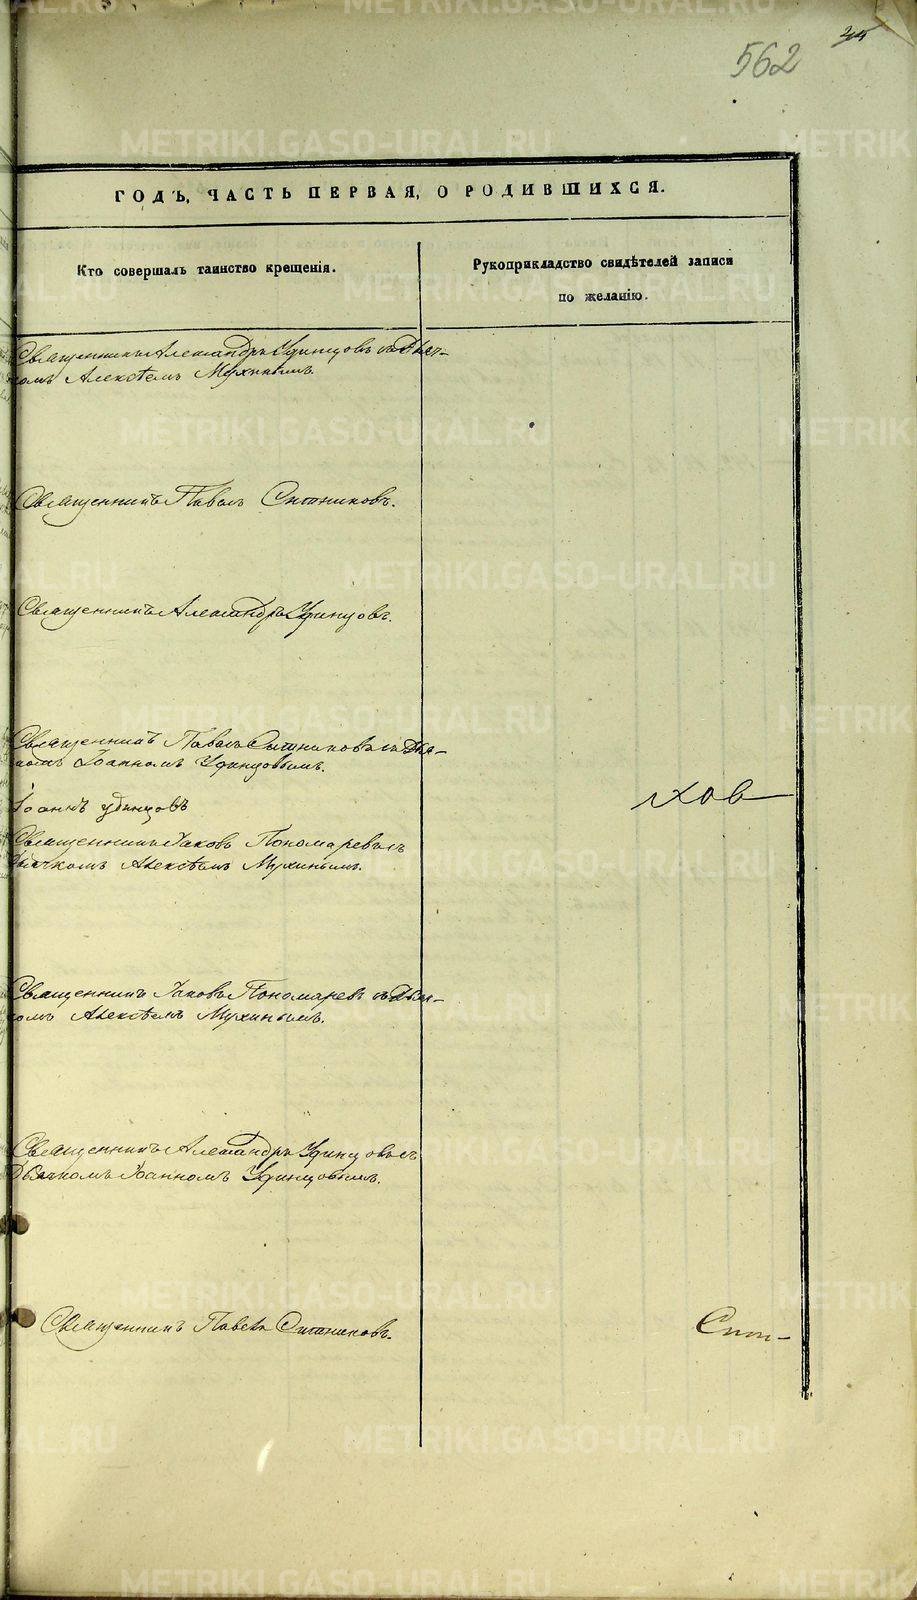 562
25
ГОДЪ, ЧАСТЬ ПЕРВАЯ, О РОДИВШИХСЯ.
Кто совершалъ таинство крещенія.
Рукоприкладство свидѣтелей записи
по желанію.
Священникъ Александръ Удинцовъ съ Дьяч-
комъ Алексѣемъ Мухинымъ.
Священникъ Павелъ Ситниковъ.
Священникъ Александръ Удинцовъ.
Священникъ Павелъ Ситниковъ съ Дья-
комъ Іоанномъ Удинцовымъ.
Іоаннъ Удинцовъ
хов
Священникъ Іаковъ Пономаревъ съ
Дьячкомъ Алексѣемъ Мухинымъ.
Священникъ Іаковъ Пономаревъ съ Дьяч-
комъ Алексѣемъ Мухинымъ.
Священникъ Александръ Удинцовъ съ
Дьячкомъ Іоанномъ Удинцовымъ.
Священникъ Павелъ Ситниковъ.
METRIKI.GASO-URAL.RU